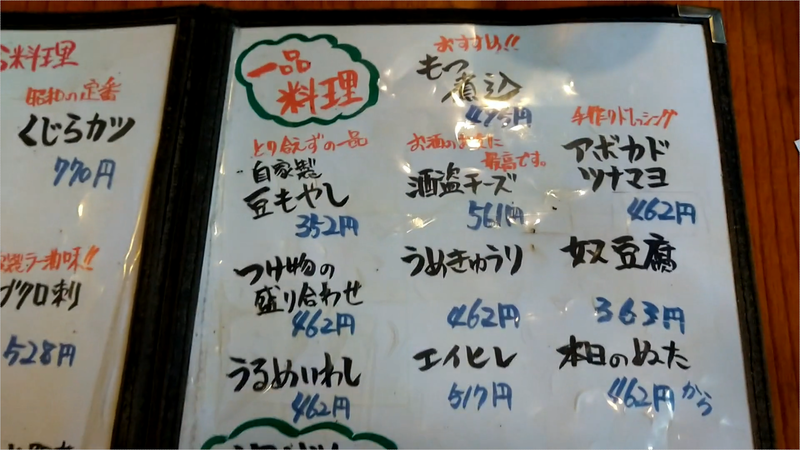 料理
昭和の定番
くじらカツ
770円
ラー油味!!
ブクロ刺
528円
一品
料理
おすすめ!!
もつ
煮込
495円
とり合えずの一品
自家製
豆もやし
352円
お酒の
最高です。
酒盗チーズ
561円
手作りドレッシング
アボカド
ツナマヨ
462円
つけ物の
盛り合わせ
462円
うめきゅうり
462円
奴豆腐
363円
うるめいわし
462円
エイヒレ
517円
本日のぬた
462円から